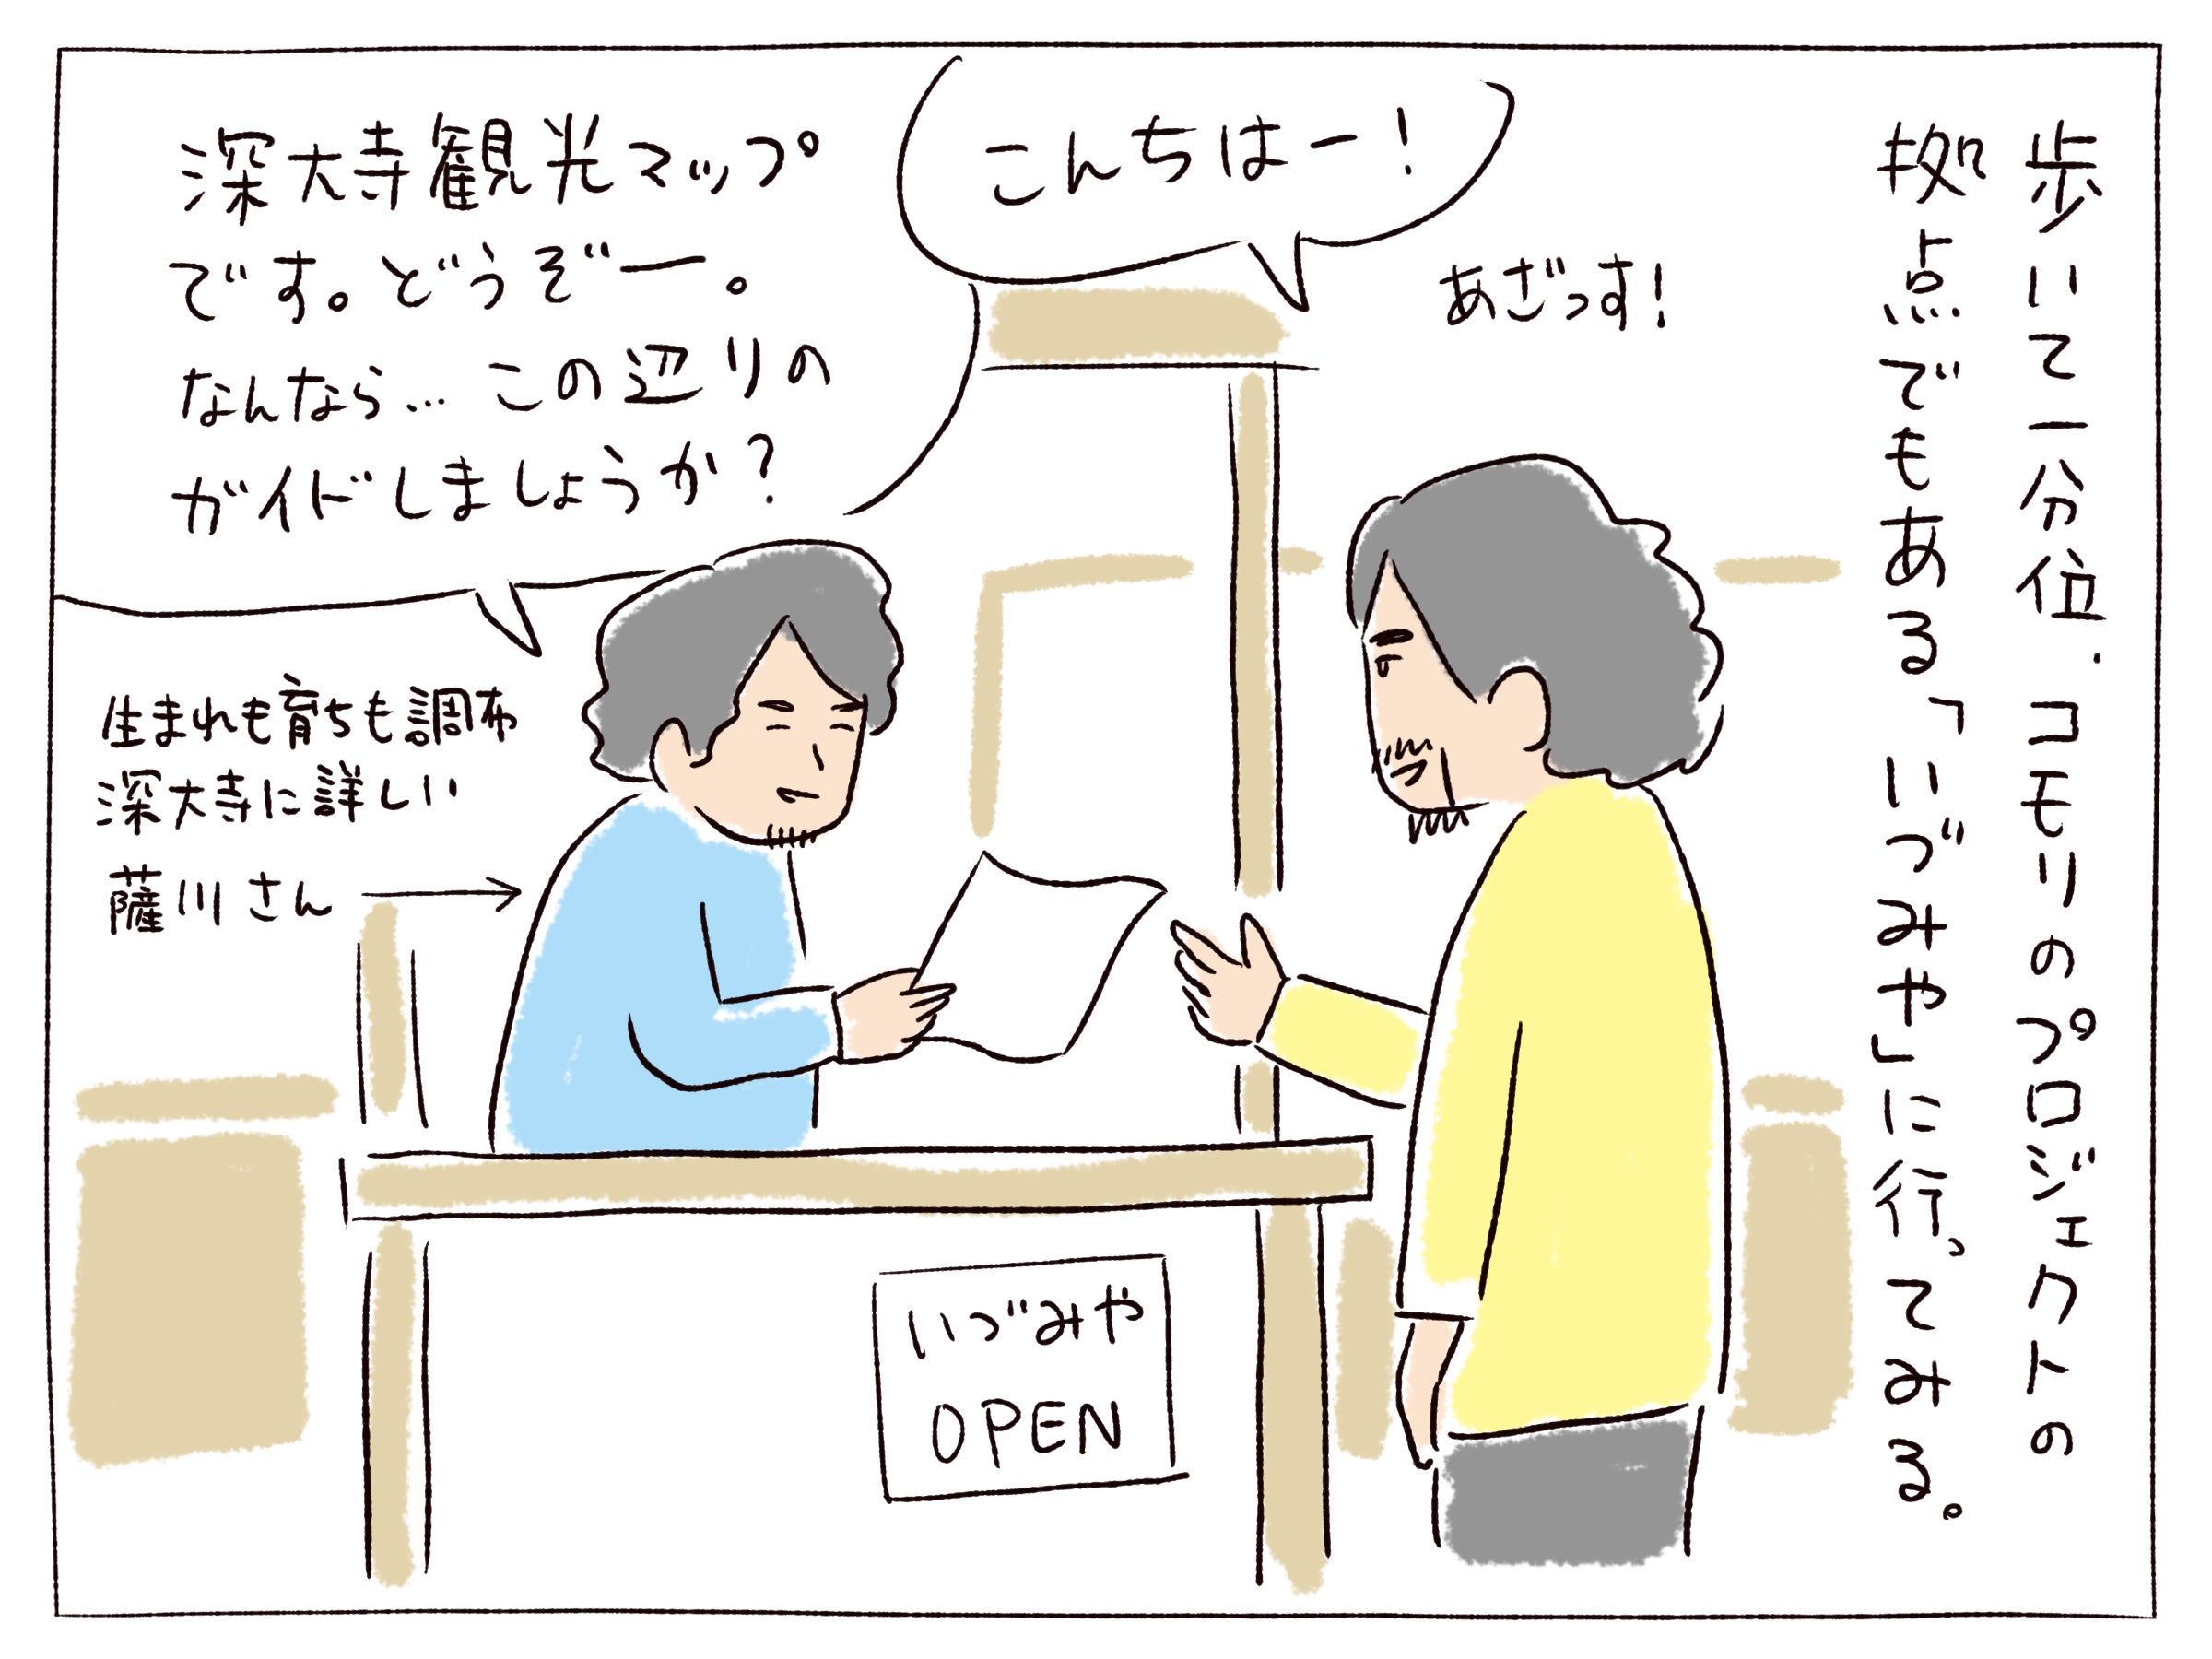 歩いて一分位.コモリのプロジェクトの
拠点でもある「いづみや」に行ってみる。
こんちはー!
あざっす!
深大寺観光マップ
です。どうぞー。
なんなら…この辺りの
ガイドしましょうか?
生まれも育ちも調布
深大寺に詳しい
薩川さん
いづみや
OPEN